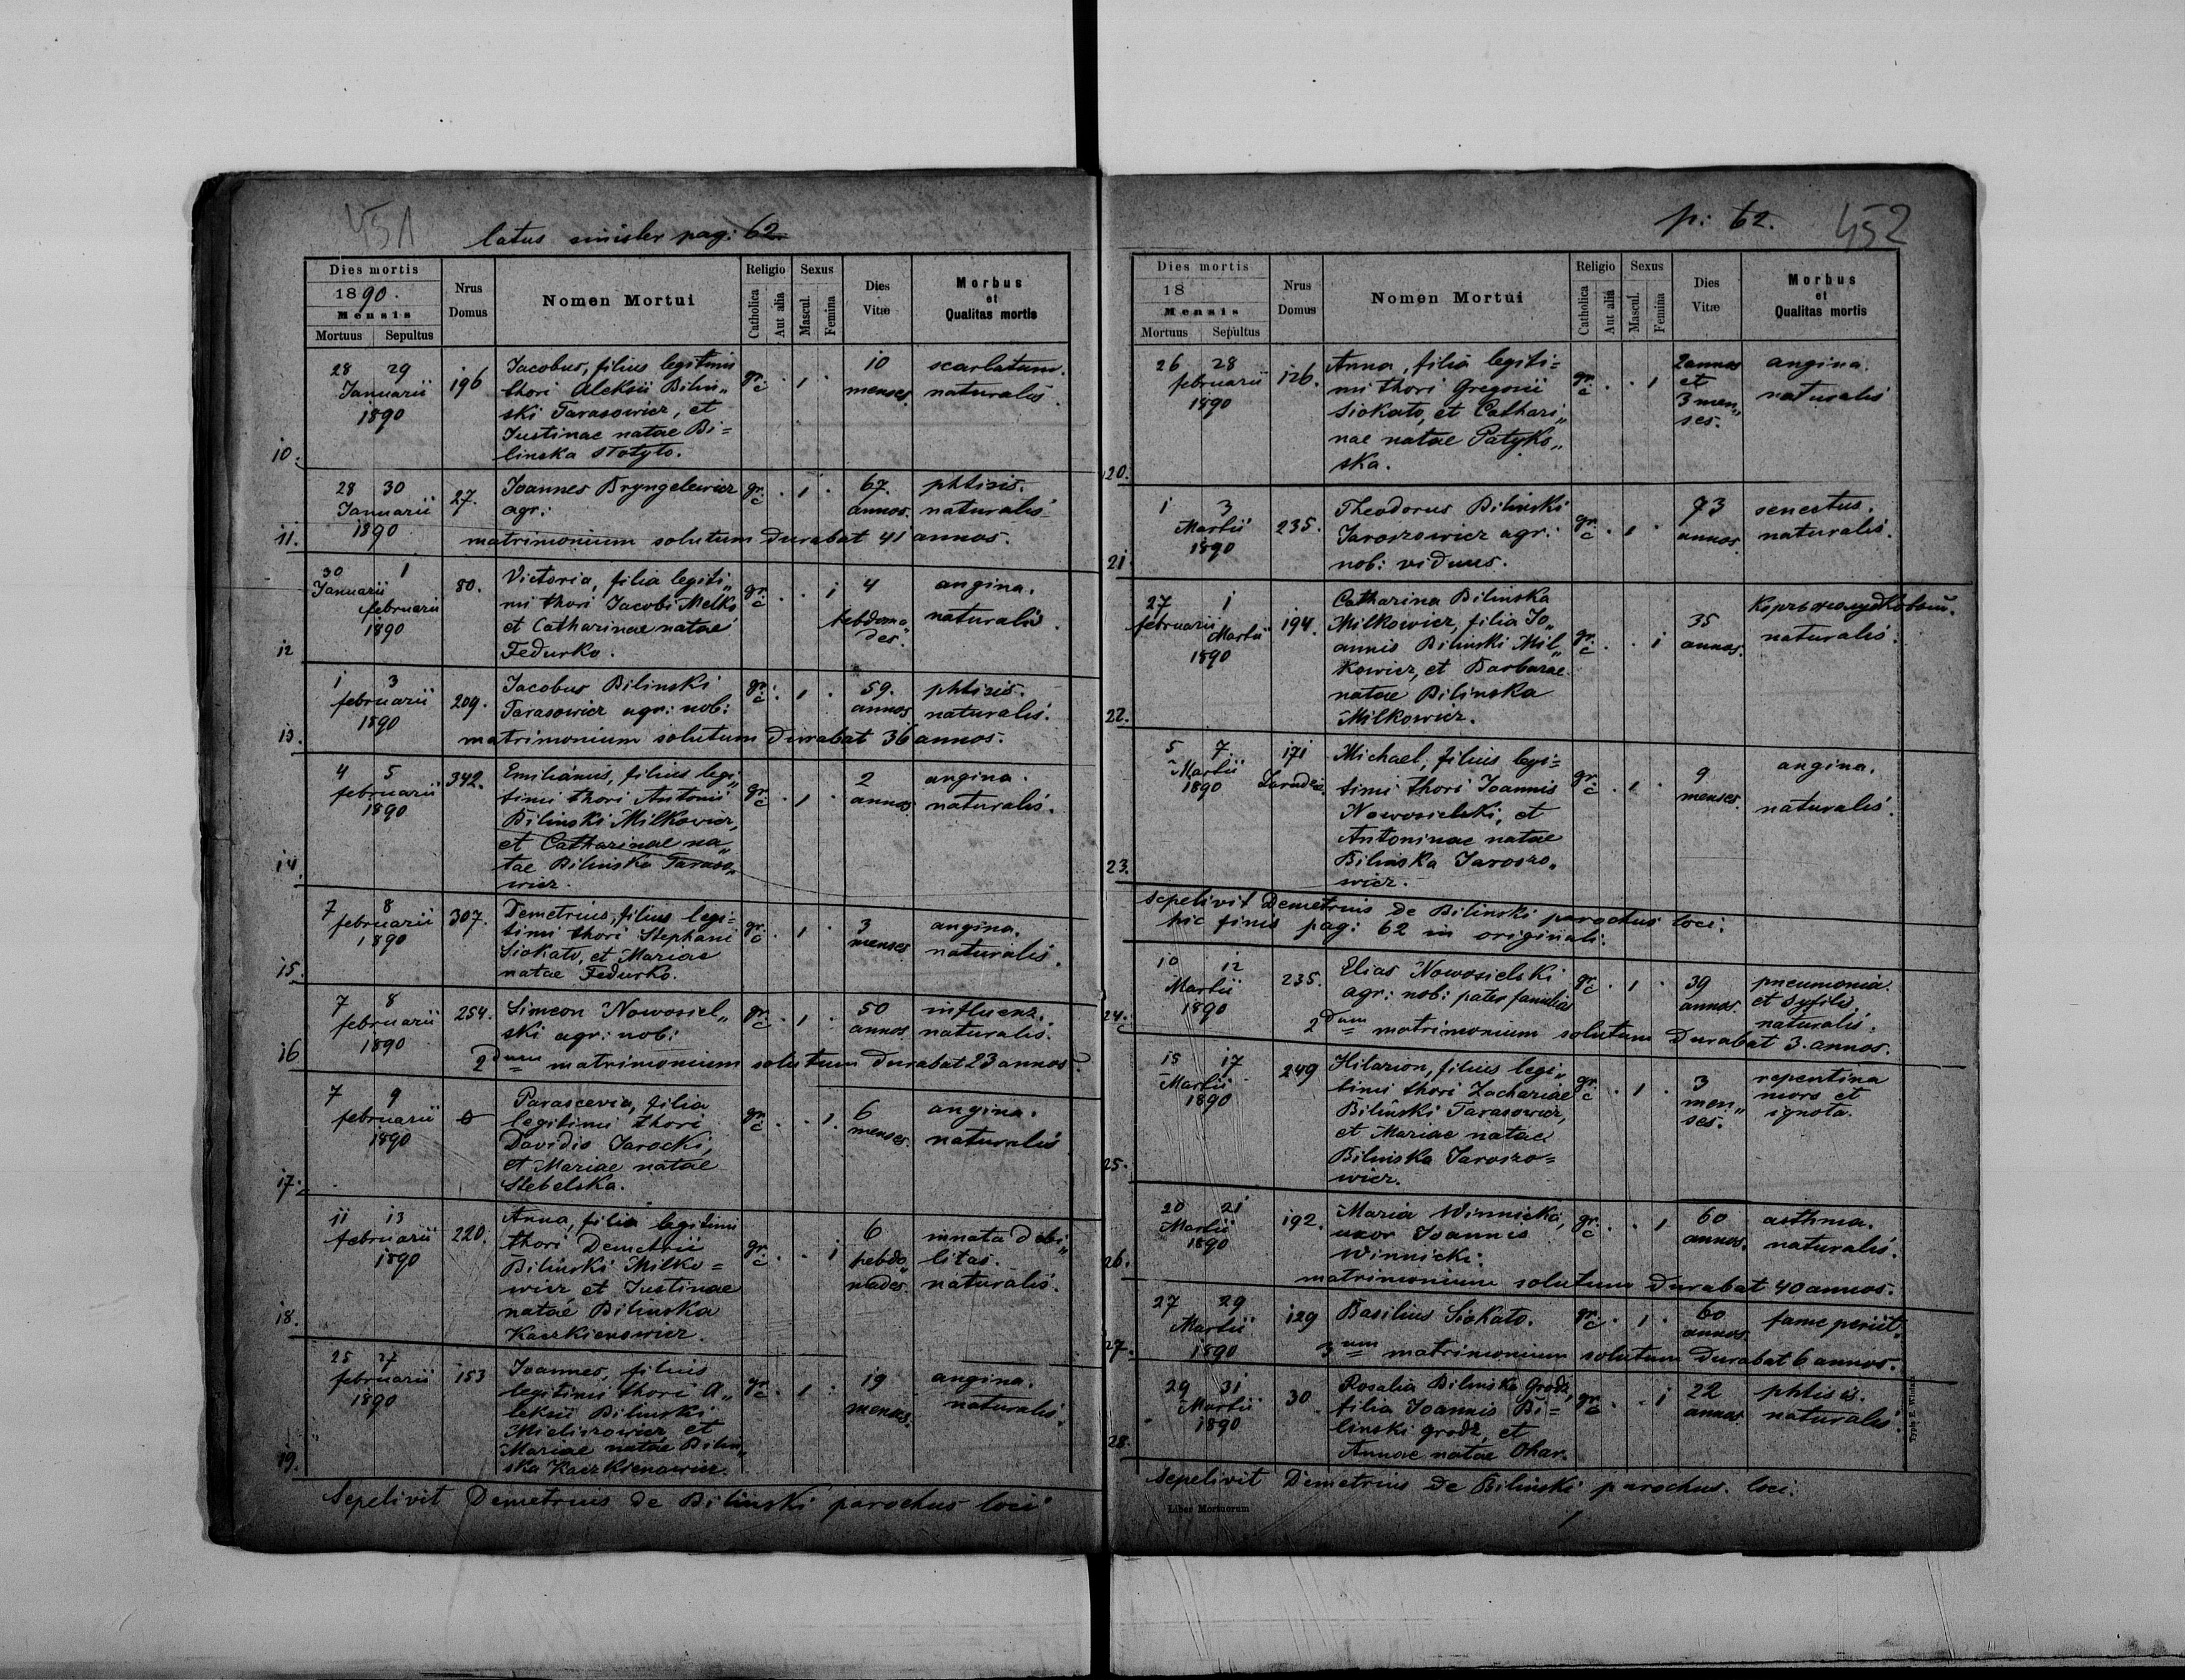 451
latus sinister pag: 62
Dies mortis
1890.
Mensis
Mortuus Sepultus
Nrus
Domus
Nomen Mortui
Religio
Catholica
Aut alia
Sexus
Mascul.
Femina
Dies
Vitæ
Morbus
et
Qualitas mortis
10.
28 29
Januarii
1890
196
Jacobus, filius legitimi
thori Aleksii Bilin„
ski Tarasowicz, et
Justinae natae Bi=
linska
gr.
c
. 1 .
10
menses
scarlatum.
naturalis.
11.
28 30
Januarii
1890
27.
Joannes Bryngelewicz
agr:
gr.
c
. 1 .
67.
annos.
phtisis.
naturalis
matrimonium solutum durabat 41 annos.
12
30 1
Januarii
februarii
1890
80.
Victoria, filia legiti„
mi thori Jacobi Melko
et Catharinae natae
Fedurko.
gr.
c
. . 1
4
hebdoma„
des.
angina.
naturalis.
13.
1 3
februarii
1890
209.
Jacobus Bilinski
Tarasowicz agr: nob:
gr.
c
. 1 .
59.
annos
phtisis.
naturalis.
matrimonium solutum durabat 36 annos.
14.
4 5
februarii
1890
342.
Emilianus, filius legi„
timi thori Antonii
Bilinski Milkowicz,
et Catharinae na„
tae Bilinska Taraso„
wicz.
gr.
c
. 1 .
2
annos
angina.
naturalis.
15.
7 8
februarii
1890
307.
Demetrius, filius legi=
timi thori Stephani
Siokato, et Mariae
natae Fedurko.
gr.
c
. 1 .
3
menses
angina.
naturalis.
16
7 8
februarii
1890
254.
Simeon Nowosiel„
ski agr: nob:
gr.
c
. 1 .
50
annos
influenz.
naturalis.
2dum matrimonium solutum durabat 23 annos.
17.
7 9
februarii
1890
0
Parascevia, filia
legitimi thori
Davidis Jarocki,
et Mariae natae
Stebelska.
gr.
c
. . 1.
6
menses.
angina.
naturalis
18.
11 13
februarii
1890
220.
Anna, filia legitimi
thori Demetrii
Bilinski Milko=
wicz, et Justinae
natae Bilinska
Kaczkienowicz.
gr.
c
. . 1
6
hebdo„
mades.
innata debi„
litas.
naturalis.
19.
25 27
februarii
1890
153
Joannes, filius
legitimi thori A„
leksii Bilinski
Mieliszowicz, et
Mariae natae Bilin„
ska Kaczkienowicz.
gr.
c
. 1 .
19
menses.
angina.
naturalis.
Sepelivit Demetrius de Bilinski parochus loci
p: 62.
452
Dies mortis
18
Mensis
Mortuus Sepultus
Nrus
Domus
Nomen Mortui
Religio
Catholica
Aut alia
Sexus
Mascul.
Femina
Dies
Vitæ
Morbus
et
Qualitas mortis
20.
26 28
februarii
1890
126.
Anna, filia legiti=
mi thori Gregorii
Siokato, et Cathari„
nae natae Patyko„
ska.
gr.
c
. . 1
2 annos
et
3 men„
ses.
angina.
naturalis
21
1 3
Martii
1890
235.
Theodorus Bilinski
Jaroszowicz agr:
nob: viduus.
gr.
c
. 1 .
73
annos.
senectus.
naturalis.
22.
27 1
februarii
Martii
1890
194.
Catharina Bilinska
Milkowicz, filia Jo„
annis Bilinski Mil„
kowicz, et Barbarae
natae Bilinska
Milkowicz.
gr.
c
. . 1
35
annos.
naturalis.
23.
5 7
Martii
1890
171
Michael, filius legi=
timi thori Joannis
Nowosielski, et
Antoninae natae
Bilinska Jaroszo„
wicz.
gr.
c
. 1 .
9
menses.
angina.
naturalis.
sepelivit Demetrius de Bilinski parochus loci.
hic finis pag: 62 in originali.
24.
10 12
Martii
1890
235.
Elias Nowosielski
agr: nob: pater familias
gr.
c
. 1 .
39
annos.
pneumonia.
et syfilis
naturalis.
2dum matrimonium solutum durabat 3 annos.
25.
15 17
Martii
1890
249
Hilarion, filius legi„
timi thori Zachariae
Bilinski Tarasowicz,
et Mariae natae
Bilinska Jaroszo=
wicz.
gr.
c
. 1 .
3
men„
ses.
repentina
mors et
ignota.
26.
20 21
Martii
1890
192.
Maria Winnicka,
uxor Joannis
Winnicki.
gr.
c
. . 1
60
annos.
asthma.
naturalis.
matrimonium solutum durabat 40 annos.
27.
27 29
Martii
1890
129
Basilius Siokato.
gr.
c
. 1 .
60
annos
fame periit.
3um matrimonium solutum durabat 6 annos.
28.
29 31
Martii
1890
30
Rosalia Bilinska Grodz,
filia Joannis Bi=
linski grodz, et
Annae natae Ohar.
gr.
c
. . 1
22
annos
phtisis.
naturalis.
Sepelivit Demetrius de Bilinski parochus loci.
Liber Mortuorum